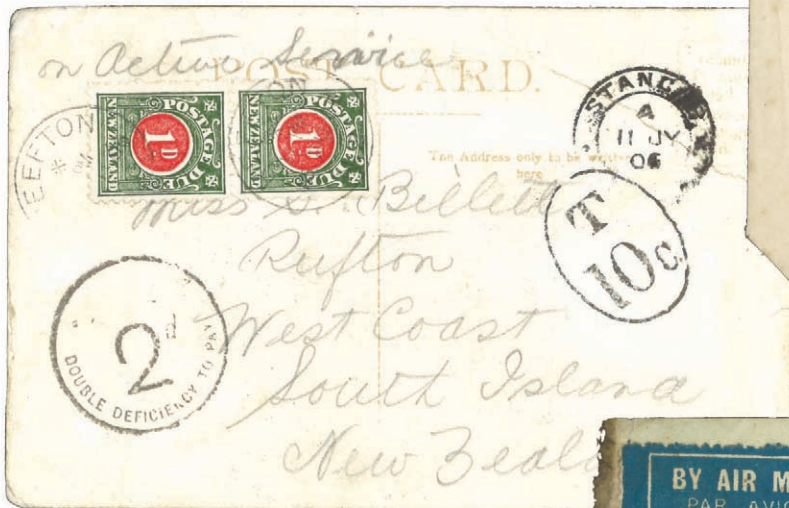 on Active Service
POST CARD.
EEFTON
POSTAGE DUE
1D
NEW ZEALAND
POSTAGE DUE
1D
NEW ZEALAND
ON
STANGER
A
11 JY
06
The Address only to be written
here
T
10c
Miss S. Billett
Rufton
West Coast
South Island
New Zeala
2d
DOUBLE DEFICIENCY TO PAY
BY AIR M
PAR AVIO